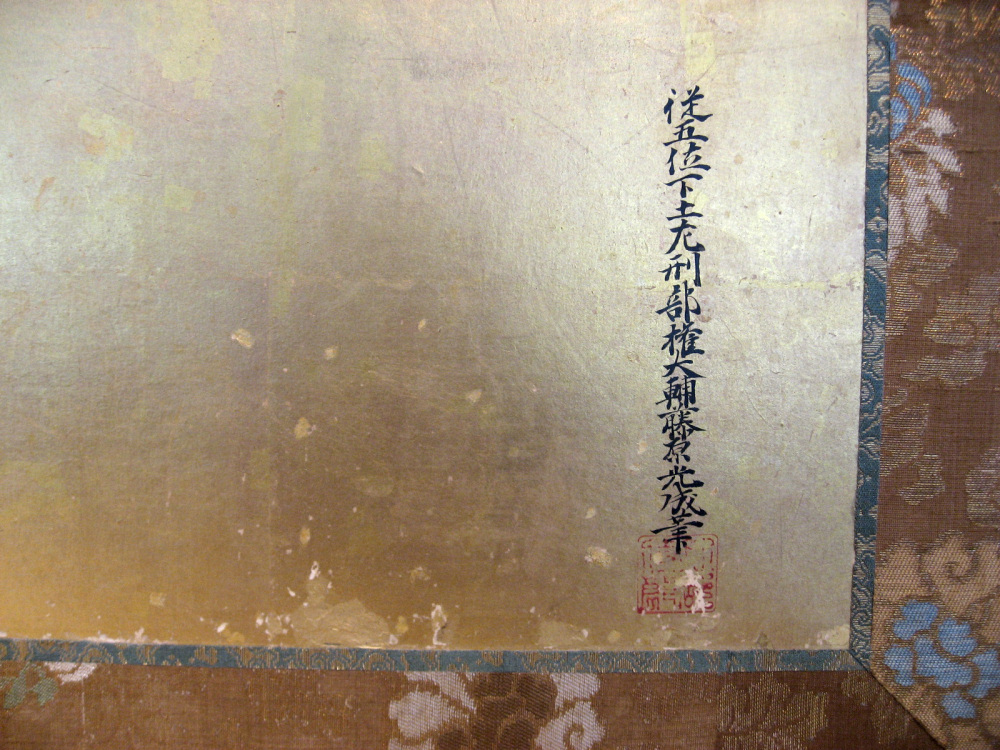 従五位下土左刑部権大輔藤原光成筆